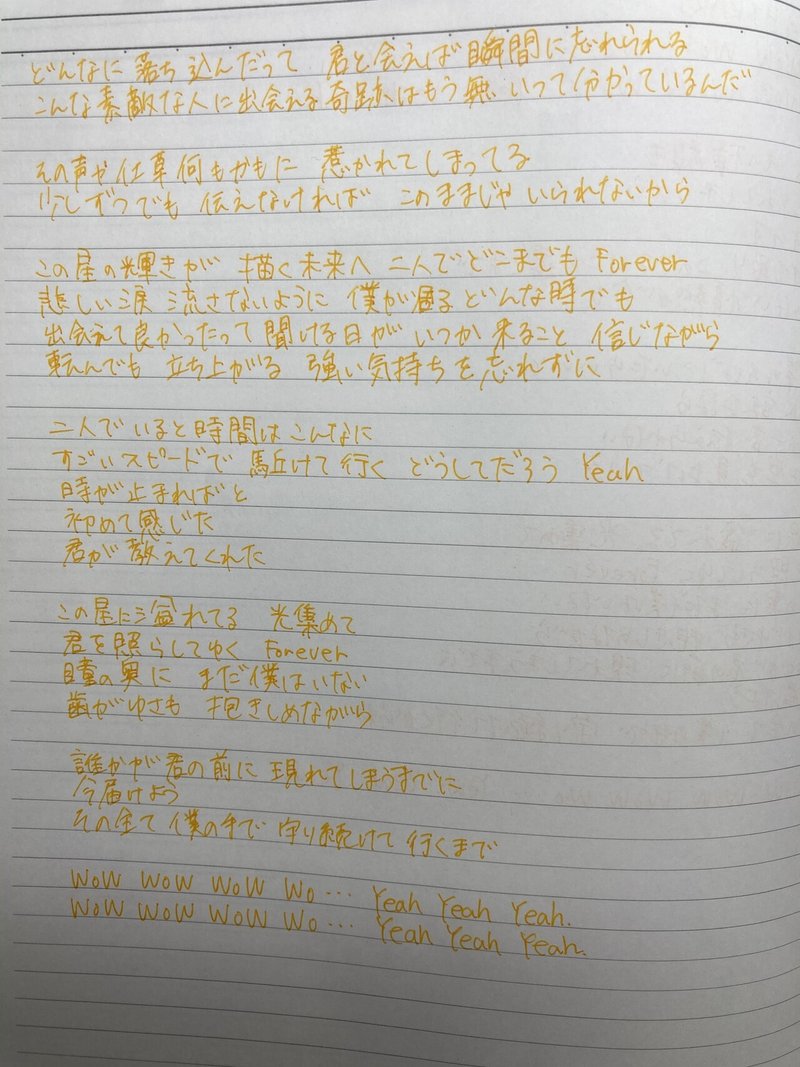 どんなに落ち込んだって 君と会えば瞬間に忘れられる
こんな素敵な人に出会える奇跡はもう無いって分かっているんだ
その声や仕草何もかもに 惹かれてしまってる
少しずつでも 伝えなければ このままじゃいられないから
この星の輝きが 描く未来へ 二人でどこまでも Forever
悲しい涙 流さないように 僕が居る どんな時でも
出会えて良かったって聞ける日が いつか来ること 信じながら
転んでも 立ち上がる 強い気持ちを忘れずに
二人でいると時間はこんなに
すごいスピードで 駆けて行く どうしてだろう Yeah
時が止まればと
初めて感じた
君が教えてくれた
この星に溢れてる 光集めて
君を照らしてゆく Forever
瞳の奥に まだ僕はいない
歯がゆさも 抱きしめながら
誰かが君の前に 現れてしまうまでに
今届けよう
その全て 僕の手で 守り続けて 行くまで
WoW WoW WoW Wo… Yeah Yeah Yeah.
WoW WoW WoW Wo… Yeah Yeah Yeah.